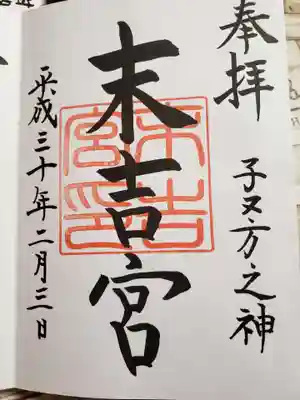 奉拝
子ヌ方之神
末吉宮
末吉宮印
平成三十年二月三日